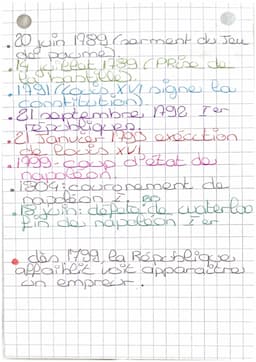 • 20 juin 1789 (serment du Jeu
de paume)
• 14 juillet 1789 (Prise de
la bastille).
• 1791 (Louis XVI signe la
constitution).
• 21 septembre 1792 Ier
république.
• 21 Janvier 1793 exécution
de Louis XVI.
• 1999-coup d'état de
napoléon.
• 1804: couronement de
napoléon I
• 18 juin: défaite de waterloo
fin de napoléon Ier
• dès 1799, la République
affaiblit voit apparaitre
un empreur.